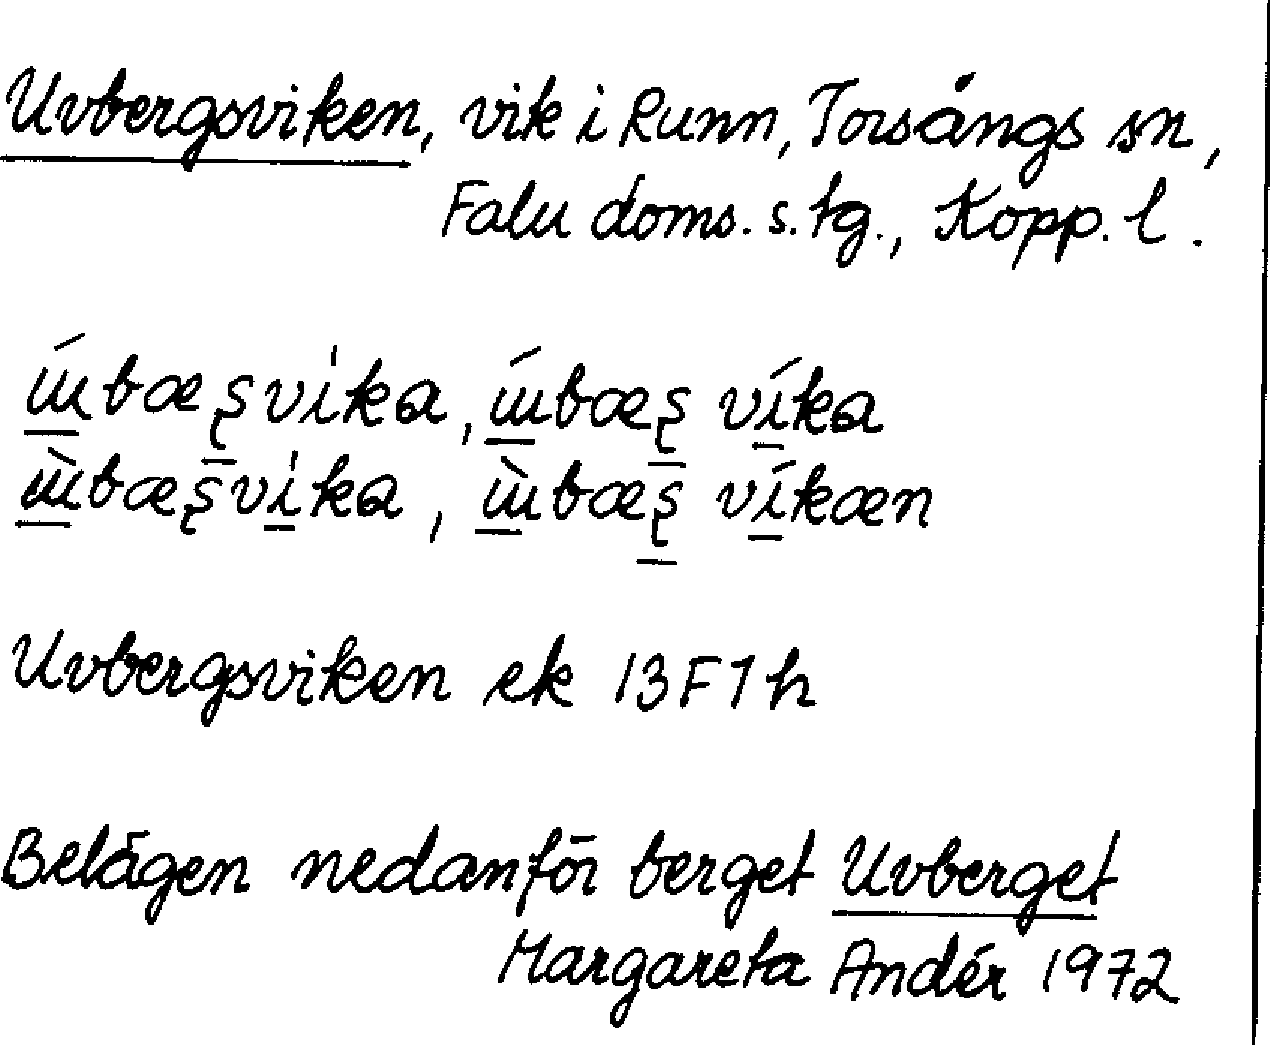 Uvbergsviken, vik i Runn, Torsångs sn,
Falu doms. s. tg., Kopp. l.
ɯ́bæʂvika, ɯ́bæʂ víka
ɯ̀bæʂvika, ɯ̀bæʂ víkæn
Uvbergsviken ek 13F1h
Belägen nedanför berget Uvberget
Margareta Andér 1972